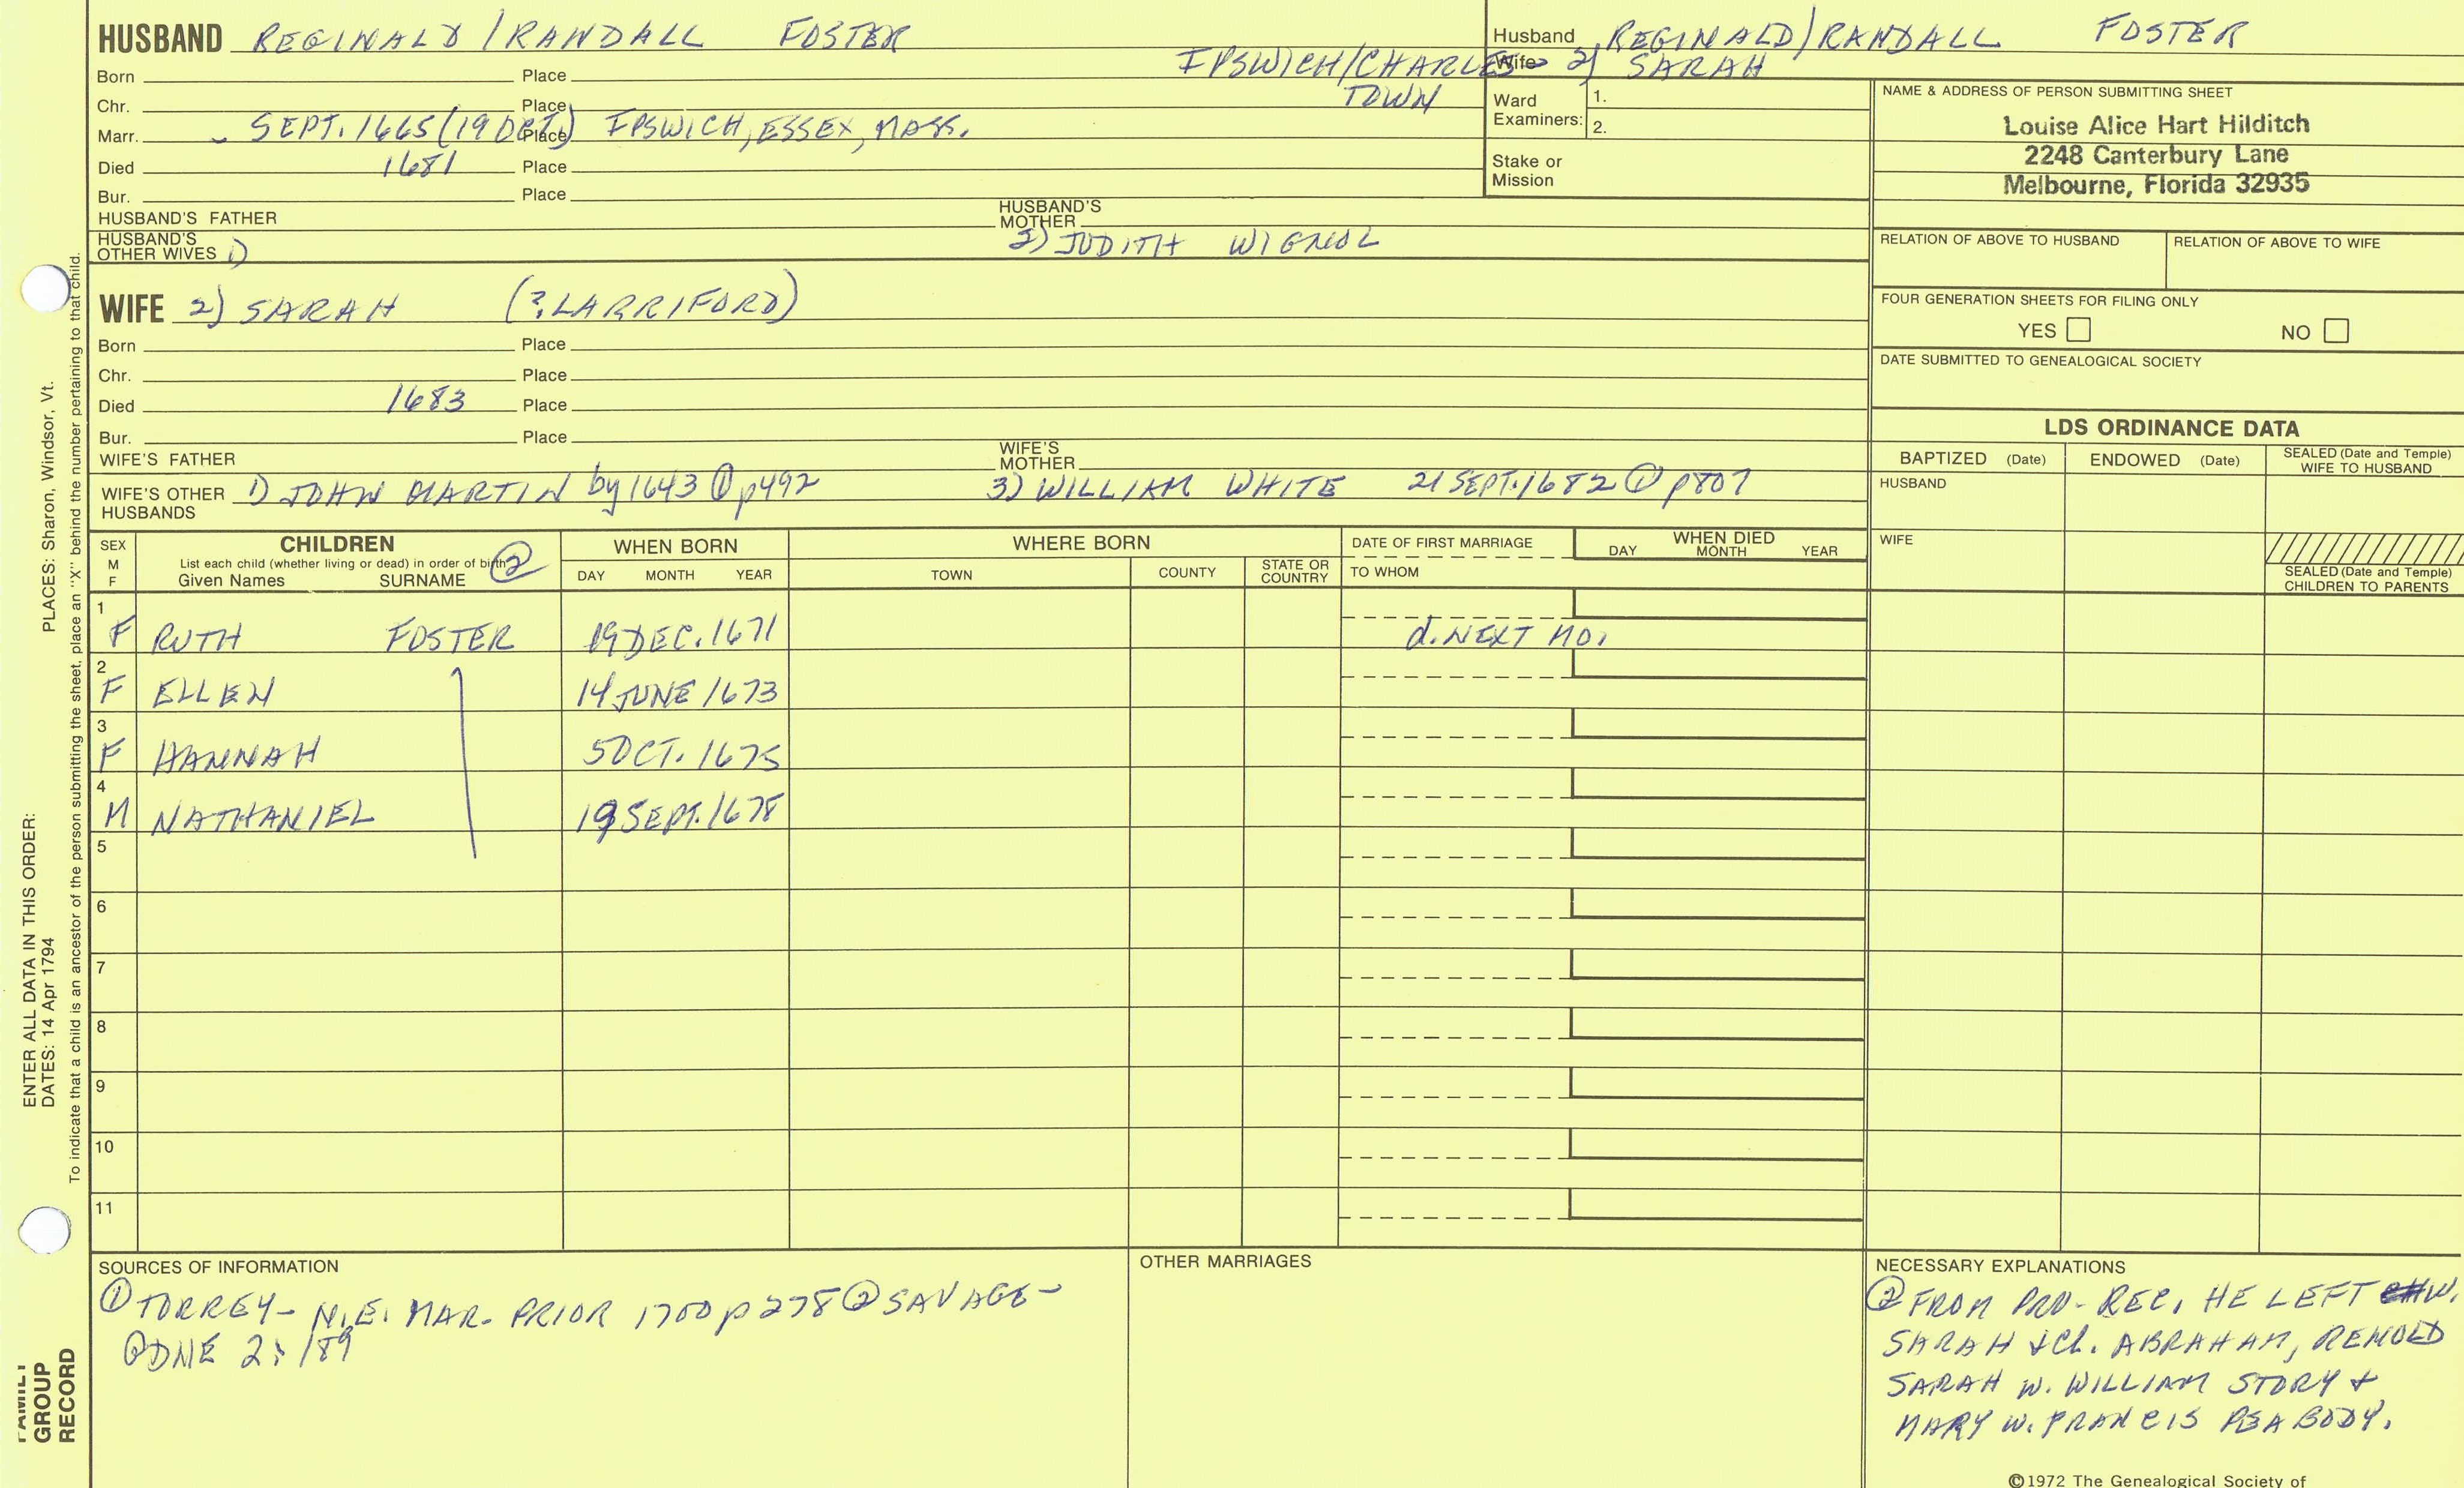 HUSBAND REGINALD/RANDALL FOSTER
Born Place IPSWICH/CHARLES
Chr. Place TOWN
Marr. SEPT. 1665 (19 OCT) Place IPSWICH, ESSEX, MASS.
Died 1681 Place
Bur. Place
HUSBAND'S FATHER HUSBAND'S MOTHER
HUSBAND'S OTHER WIVES 1) 2) JUDITH WIGNOL
Husband REGINALD/RANDALL FOSTER
Wife 2) SARAH
Ward Examiners: 1.
2.
Stake or Mission
NAME & ADDRESS OF PERSON SUBMITTING SHEET
Louise Alice Hart Hilditch
2248 Canterbury Lane
Melbourne, Florida 32935
RELATION OF ABOVE TO HUSBAND RELATION OF ABOVE TO WIFE
FOUR GENERATION SHEETS FOR FILING ONLY
YES NO
DATE SUBMITTED TO GENEALOGICAL SOCIETY
WIFE 2) SARAH (?LARRIFORD)
Born Place
Chr. Place
Died 1683 Place
Bur. Place
WIFE'S FATHER WIFE'S MOTHER
WIFE'S OTHER HUSBANDS 1) JOHN MARTIN by 1643 ① p492 3) WILLIAM WHITE 21 SEPT. 1682 ① p807
LDS ORDINANCE DATA
BAPTIZED (Date) ENDOWED (Date) SEALED (Date and Temple) WIFE TO HUSBAND
HUSBAND
WIFE
SEALED (Date and Temple) CHILDREN TO PARENTS
SEX M F CHILDREN WHEN BORN WHERE BORN DATE OF FIRST MARRIAGE WHEN DIED
List each child (whether living or dead) in order of birth ②
Given Names SURNAME DAY MONTH YEAR TOWN COUNTY STATE OR COUNTRY TO WHOM DAY MONTH YEAR
1 F RUTH FOSTER 19 DEC. 1671 d. NEXT MO.
2 F ELLEN 14 JUNE 1673
3 F HANNAH 5 OCT. 1675
4 M NATHANIEL 19 SEPT. 1678
5
6
7
8
9
10
11
SOURCES OF INFORMATION
① TORREY- N.E. MAR. PRIOR 1700 p278 ② SAVAGE-
DNE 2: /89
OTHER MARRIAGES
NECESSARY EXPLANATIONS
② FROM PRO. REC. HE LEFT W.
SARAH & Ch. ABRAHAM, RENOLD
SARAH W. WILLIAM STORY +
MARY W. FRANCIS PEABODY.
©1972 The Genealogical Society of
PLACES: Sharon, Windsor, Vt.
ENTER ALL DATA IN THIS ORDER:
DATES: 14 Apr 1794
To indicate that a child is an ancestor of the person submitting the sheet, place an "X" behind the number pertaining to that child.
FAMILY
GROUP
RECORD